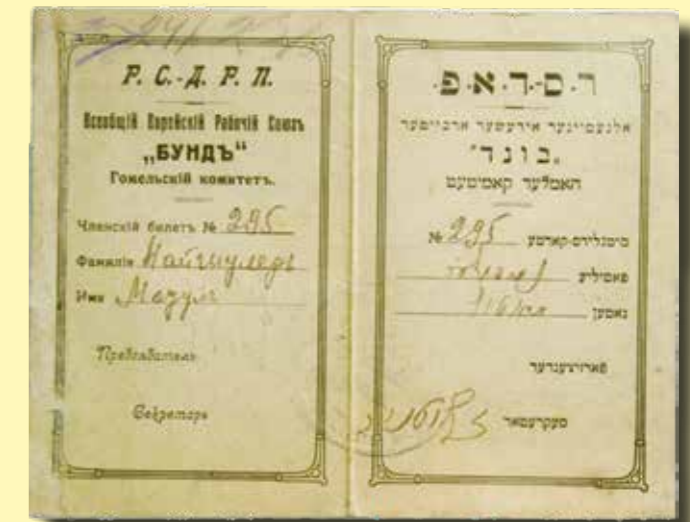 Р. С.-Д. Р. П.
Всеобщій Еврейскій Рабочій Союзъ
„БУНДЪ“
Гомельскій комитетъ.
Членскій билетъ № 295
Фамилія
Имя Мазуль
Предсѣдатель
Секретарь
ר.ס-ד.א.פ.
אלגעמיינער אידישער ארבייטער
„בונד“
האמלער קאמיטעט
מיטגלידס-קארטע № 295
פאמיליע
נאמען
פארזיצענדער
סעקרעטאר